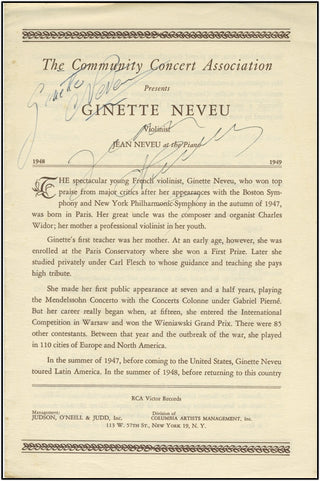 The Community Concert Association
Presents
Ginette
Neveu
GINETTE NEVEU
Violinist
Jean
Neveu
JEAN NEVEU at the Piano
1948 1949
THE spectacular young French violinist, Ginette Neveu, who won top
praise from major critics after her appearances with the Boston Sym-
phony and New York Philharmonic-Symphony in the autumn of 1947,
was born in Paris. Her great uncle was the composer and organist Charles
Widor; her mother a professional violinist in her youth.
Ginette's first teacher was her mother. At an early age, however, she was
enrolled at the Paris Conservatory where she won a First Prize. Later she
studied privately under Carl Flesch to whose guidance and teaching she pays
high tribute.
She made her first public appearance at seven and a half years, playing
the Mendelssohn Concerto with the Concerts Colonne under Gabriel Pierné.
But her career really began when, at fifteen, she entered the International
Competition in Warsaw and won the Wieniawski Grand Prix. There were 85
other contestants. Between that year and the outbreak of the war, she played
in 110 cities of Europe and North America.
In the summer of 1947, before coming to the United States, Ginette Neveu
toured Latin America. In the summer of 1948, before returning to this country
RCA Victor Records
Management: Division of
JUDSON, O'NEILL & JUDD, Inc. COLUMBIA ARTISTS MANAGEMENT, Inc.
113 W. 57TH St., NEW YORK 19, N. Y.